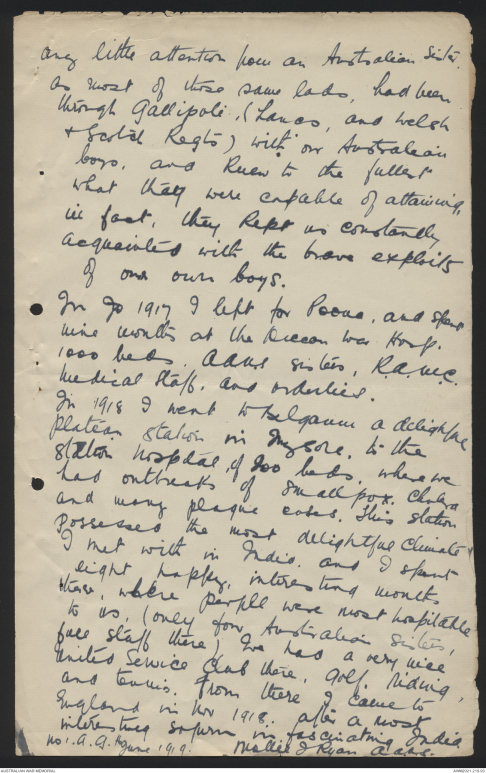 any little attention from an Australian Sister.
as most of those same lads, had been
through Gallipoli, (Lancs, and Welsh
& Scotch Regts) with our Australian
boys, and knew to the fullest
what they were capable of attaining,
in fact, they kept us constantly
acquainted with the brave exploits
of our own boys.
In 1917 I left for Poona, and spent
nine months at the Deccan War Hosp.
1000 beds, AANS sisters, R.A.M.C.
Medical Staff, and orderlies.
In 1918 I went to Belgaum a delightful
plateau station in Mysore, to the
Station hospital, of 200 beds, where we
had outbreaks of Smallpox, Cholera
and many plague cases. This station
possessed the most delightful climate
I met with in India, and I spent
eight happy, interesting months
there, where people were most hospitable
to us, (only four Australian Sisters,
full staff there) We had a very nice
United Service Club there, golf, riding,
and tennis. From there I came to
England in Nov 1918, after a most
interesting sojourn in fascinating India
No 1. A.A.H June 1919. Mollie I Ryan AANS.
AWM2021.219.90
AUSTRALIAN WAR MEMORIAL